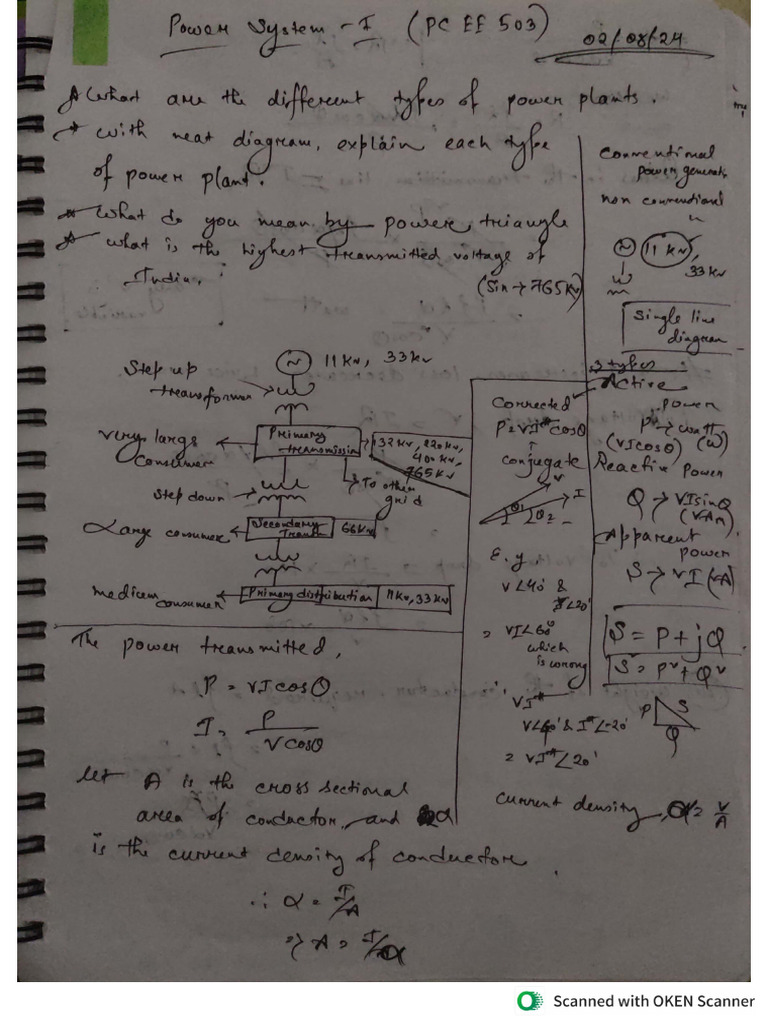 Power System - I (PC EE 503)
02/08/24
What are the different types of power plants.
With neat diagram, explain each type
of power plant.
What do you mean by power triangle
What is the highest transmitted voltage of
India.
(Sin → 765 kv)
Conventional
power generati
non conventional
"
~ 11 kv
33 kv
Single line
diagram
3 types :
Active
power
P → watt
(VI cosθ) (W)
Reactive power
Q → VI sinθ
(VAr)
Apparent
power
S → VI (VA)
S = P + jQ
S² = P² + Q²
P S
Q
~ 11 kv, 33 kv
Step up
transformer
very large
consumer
Primary
transmission
132 kv, 220 kv,
400 kv,
765 kv
To other
grid
Step down
Large consumer
Secondary
Trans
66 kv
medium
consumer
Primary distribution
11 kv, 33 kv
Corrected
P = VI* cosθ
↑
conjugate
V
I
θ1
θ2
E.g.
V∠40° &
I∠20°
= VI∠60°
which
is wrong
VI*
V∠40° & I*∠-20°
= VI*∠20°
current density, α = V/A
The power transmitted,
P = VI cosθ
I = P / V cosθ
Let A is the cross sectional
area of conductor, and α
is the current density of conductor.
∴ α = I/A
⇒ A = I/α
Scanned with OKEN Scanner